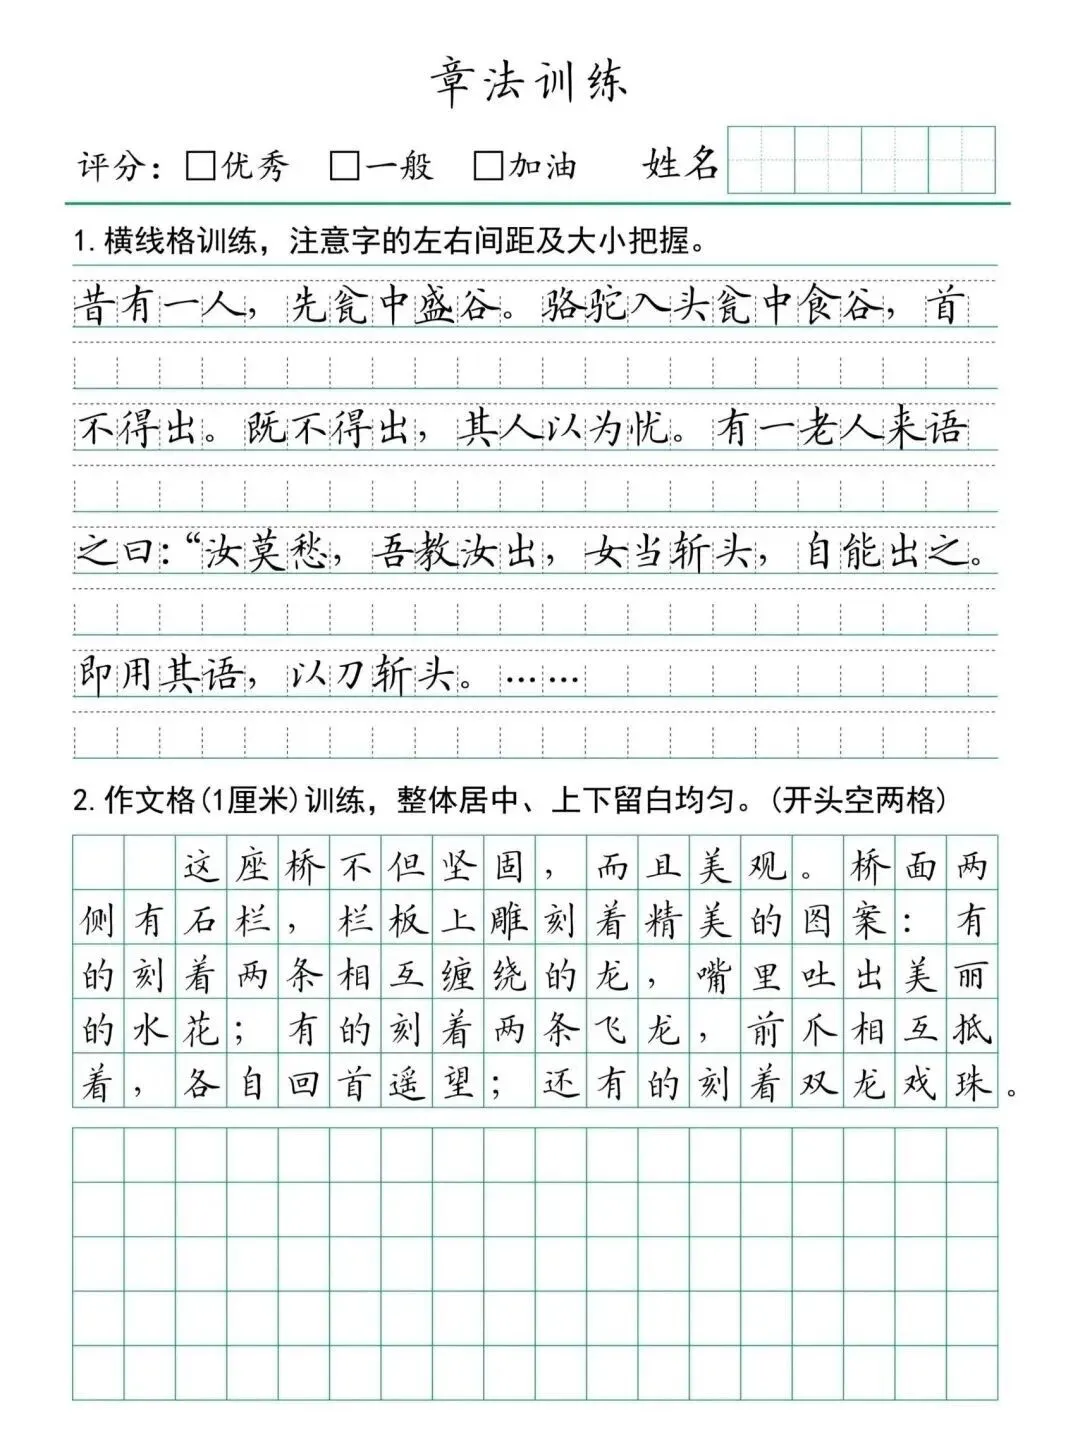 章法训练
评分：□优秀 □一般 □加油 姓名
1.横线格训练，注意字的左右间距及大小把握。
昔有一人，先瓮中盛谷。骆驼入头瓮中食谷，首
不得出。既不得出，其人以为忧。有一老人来语
之曰：“汝莫愁，吾教汝出，女当斩头，自能出之。
即用其语，以刀斩头。……
2.作文格(1厘米)训练，整体居中、上下留白均匀。(开头空两格)
这座桥不但坚固，而且美观。桥面两
侧有石栏，栏板上雕刻着精美的图案：有
的刻着两条相互缠绕的龙，嘴里吐出美丽
的水花；有的刻着两条飞龙，前爪相互抵
着，各自回首遥望；还有的刻着双龙戏珠。